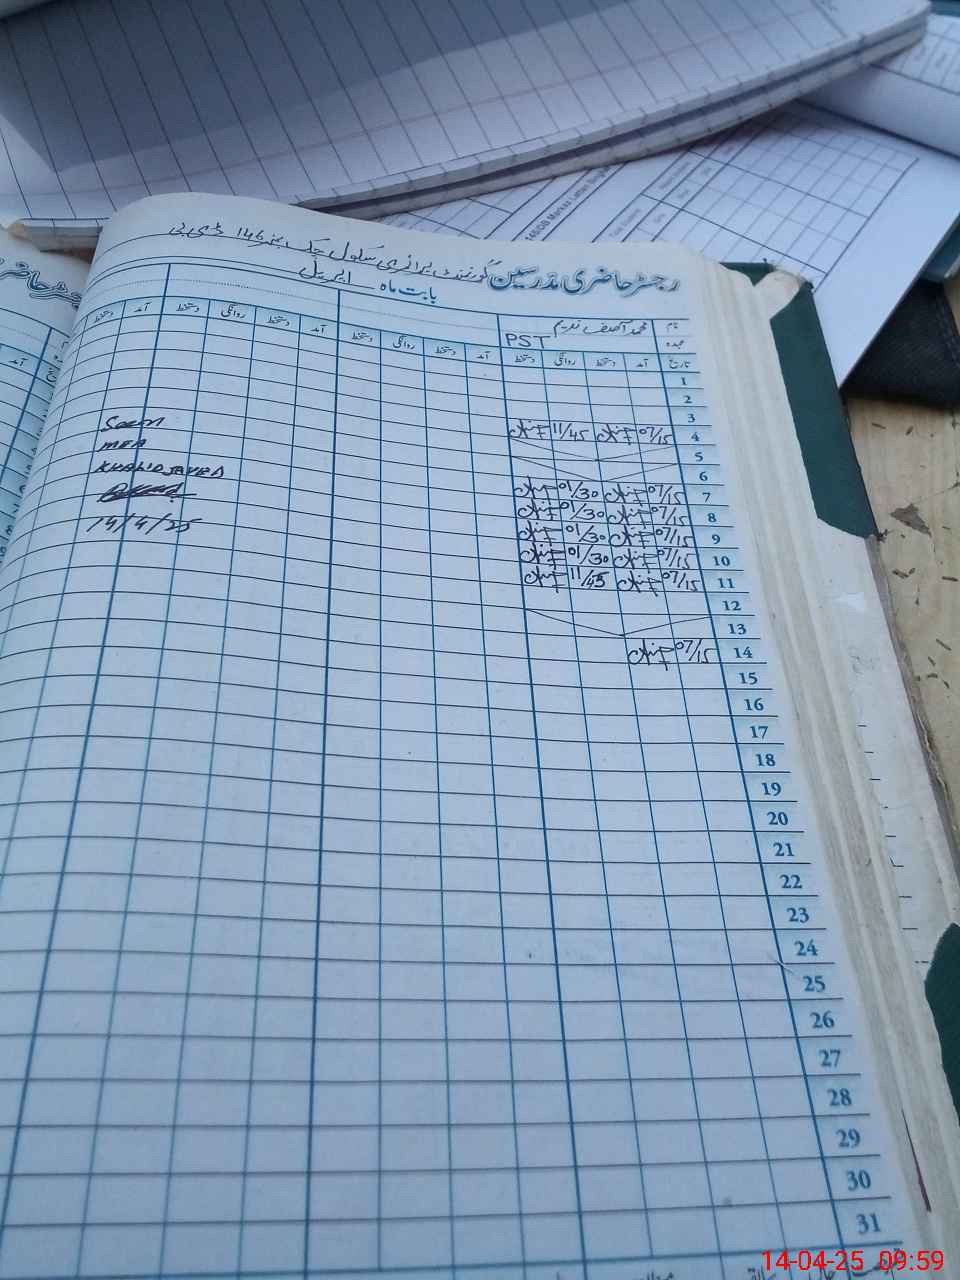 رجسٹر حاضری مدرسین گورنمنٹ پرائمری سکول چک نمبر 146 ڈی بی
بابت ماہ اپریل
نام محمد آصف ندیم
عہدہ PST
تاریخ آمد دستخط روانگی دستخط آمد دستخط روانگی دستخط آمد دستخط روانگی دستخط آمد دستخط
1
2
3
4 07/15 11/45
5
6
7 07/15 01/30
8 07/15 01/30
9 07/15 01/30
10 07/15 01/30
11 07/15 11/45
12
13
14 07/15
15
16
17
18
19
20
21
22
23
24
25
26
27
28
29
30
31
Seen
MEA
KHALID JAVED
14/4/25
رجسٹر حاضر
آمد
146/DB Markaz
14-04-25 09:59